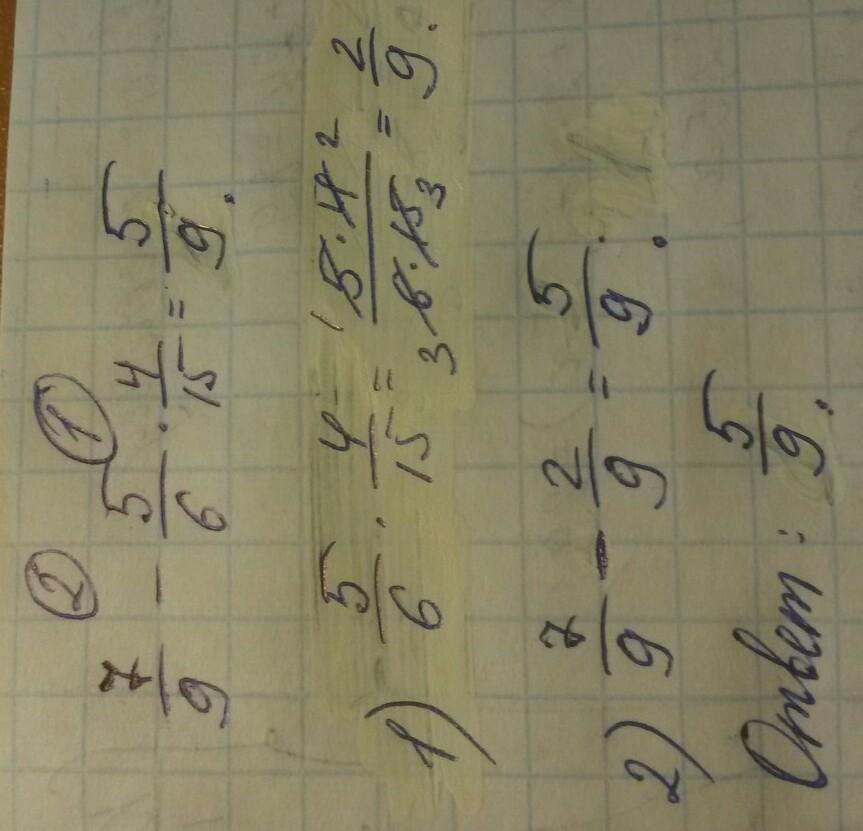 ② ①
7/9 − 5/6 · 4/15 = 5/9.
1) 5/6 · 4/15 = 1 5·4 2 / 3 6·15 3 = 2/9.
2) 7/9 - 2/9 = 5/9.
Ответ: 5/9.